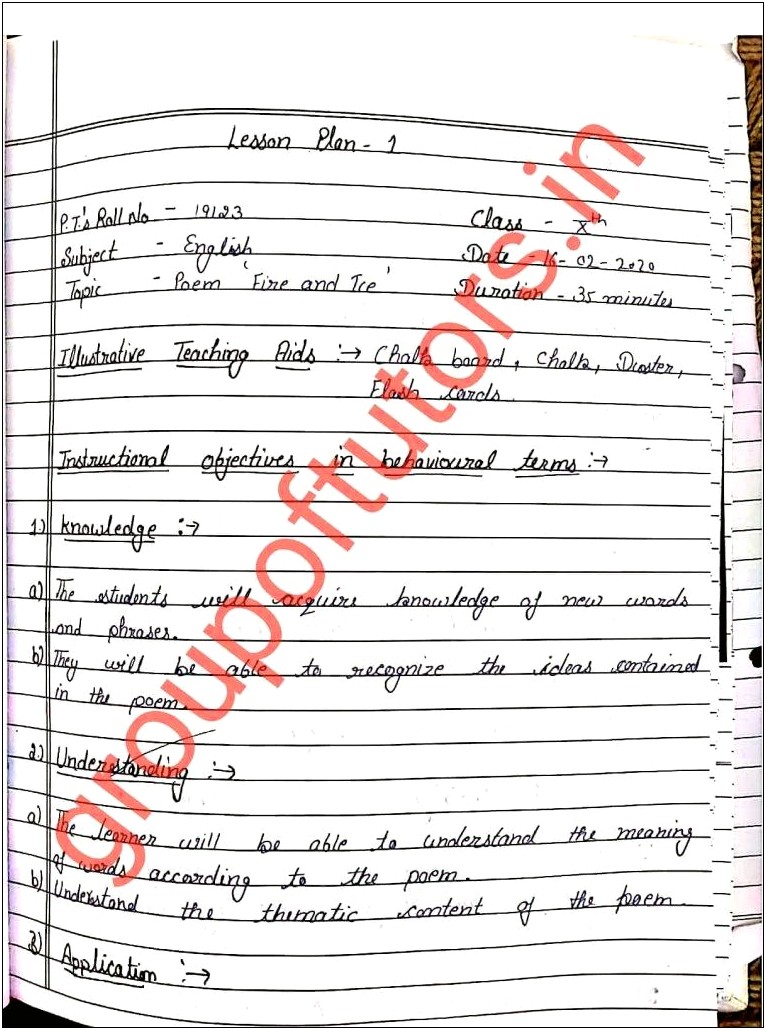 Lesson Plan - 1
P.T.'s Roll No - 19123 Class - Xth
Subject - English Date - 16-02-2020
Topic - Poem 'Fire and Ice' Duration - 35 minutes
Illustrative Teaching Aids :→ Chalk board, Chalk, Duster,
Flash cards.
Instructional objectives in behavioural terms :→
1.) Knowledge :→
a) The students will acquire knowledge of new words
and phrases.
b) They will be able to recognize the ideas contained
in the poem.
2.) Understanding :→
a) The learner will be able to understand the meaning
of words according to the poem.
b) Understand the thematic content of the poem.
3) Application :→
groupoftutors.in